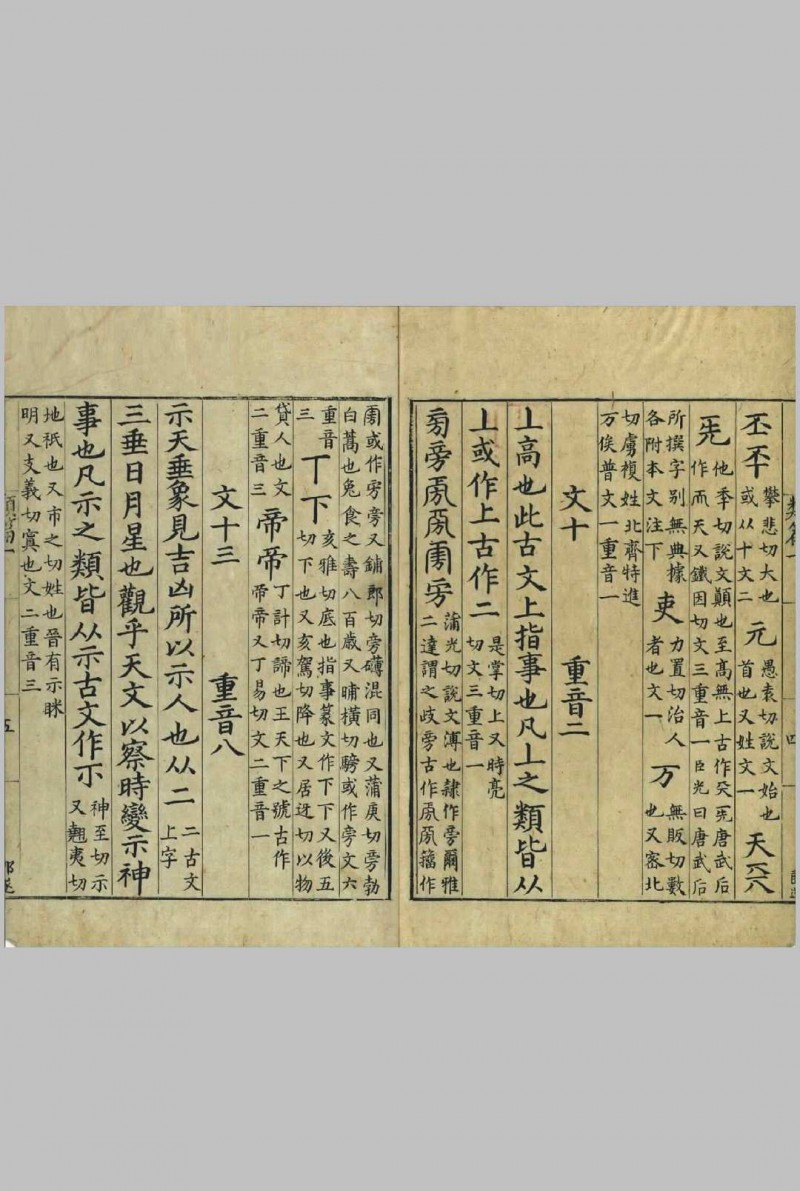 丕㔻攀悲切大也或从十文二元愚袁切說文始也首也又姓文一天
他秊切說文顛也至高無上古作唐武后作而天又鐵因切文三重音一臣光曰唐武后
所撰字別無典據各附本文注下吏力置切治人者也文一万無販切數也又密北
切虜複姓北齊特進万俟普文一重音一
文十　重音二
丄高也此古文上指事也凡丄之類皆从
丄或作上古作二是掌切上又時亮切文三重音一
旁雱蒲光切說文溥也隸作旁爾雅二達謂之歧旁古作籀作
雱或作旁又鋪郎切旁礴混同也又蒲庚切旁勃白蒿也兔食之壽八百歲又晡橫切騯或作旁文六
重音三丅下亥雅切底也指事篆文作下下又後五切下也又亥駕切降也又居迓切以物
貸人也文二重音三帝丁計切諦也王天下之號古作帝又丁易切文二重音一
文十三　重音八
示天垂象見吉凶所以示人也从二二古文上字
三垂日月星也觀乎天文以察時變示神
事也凡示之類皆从示古文作𥘅神至切示又翹夷切
地祇也又市之切姓也晉有示眯明又支義切寘也文二重音三